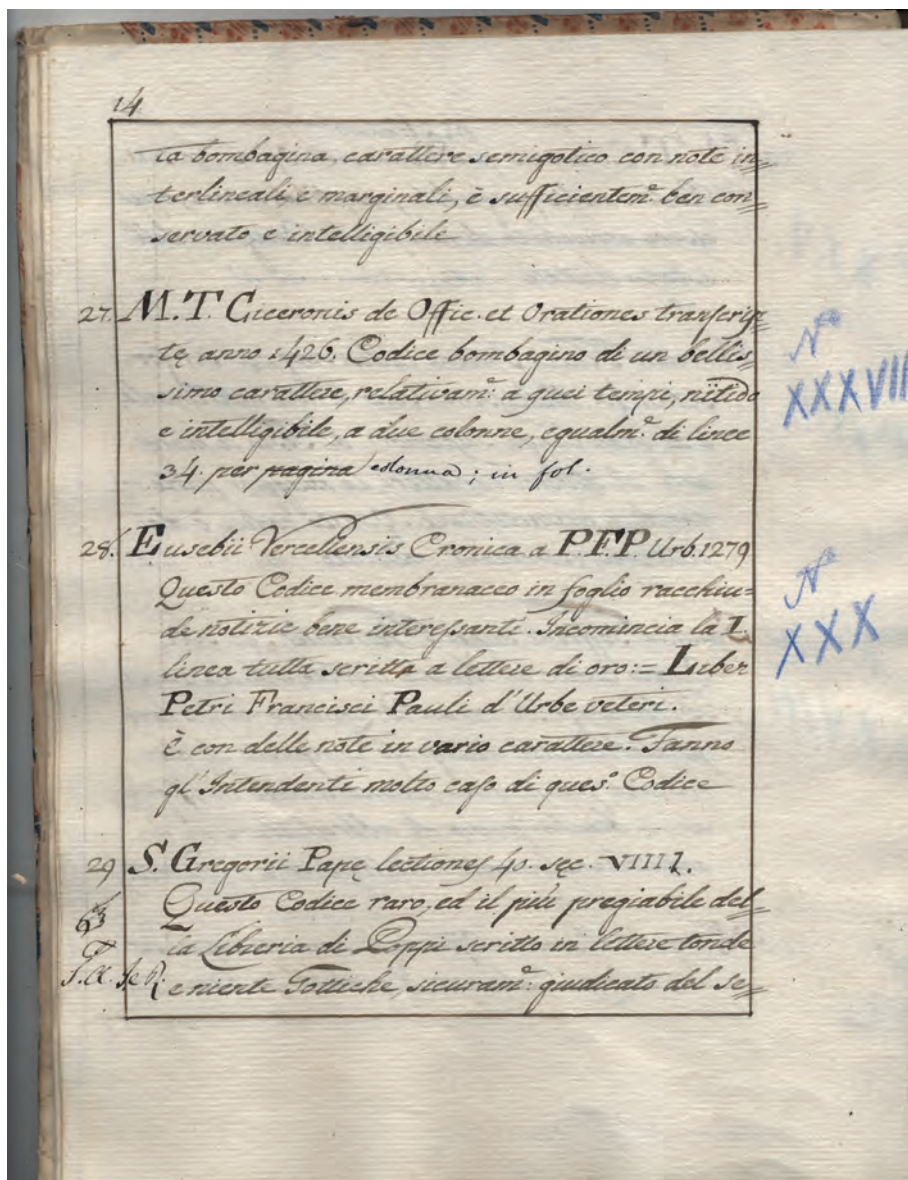 14
ta bombagina, carattere semigotico con note in=
terlineali, e marginali, è sufficientem.e ben con=
servato, e intelligibile
27. M. T. Ciceronis de Offic. et Orationes transcrip
tę anno 1426. Codice bombagino di un bellis=
simo carattere, relativam.e a quei tempi, nitido
e intelligibile, a due colonne, egualm.e di linee
34. per pagina colonna; in fol.
N.o
XXXVIII
28. Eusebii Vercellensis Cronica a P.F.P. Urb. 1279
Questo Codice membranaceo in foglio racchiu=
de notizie bene interessanti. Incomincia la I.
linea tutta scritta a lettere di oro: = Liber
Petri Francisci Pauli d'Urbe veteri.
È con delle note in vario carattere. Fanno
gl'Intendenti molto caso di ques.o Codice
N.o
XXX
29 S. Gregorii Papę lectiones 40. sęc. VIIII.
Questo Codice raro, ed il più pregiabile del=
la Libreria di Poppi scritto in lettere tonde
e niente Gottiche, sicuram.e giudicato del se=
63